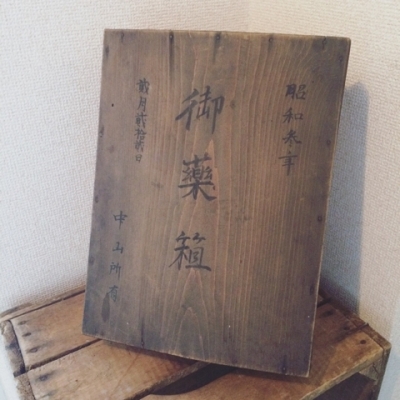 昭和参年
御藥箱
月貮拾日
中山所有